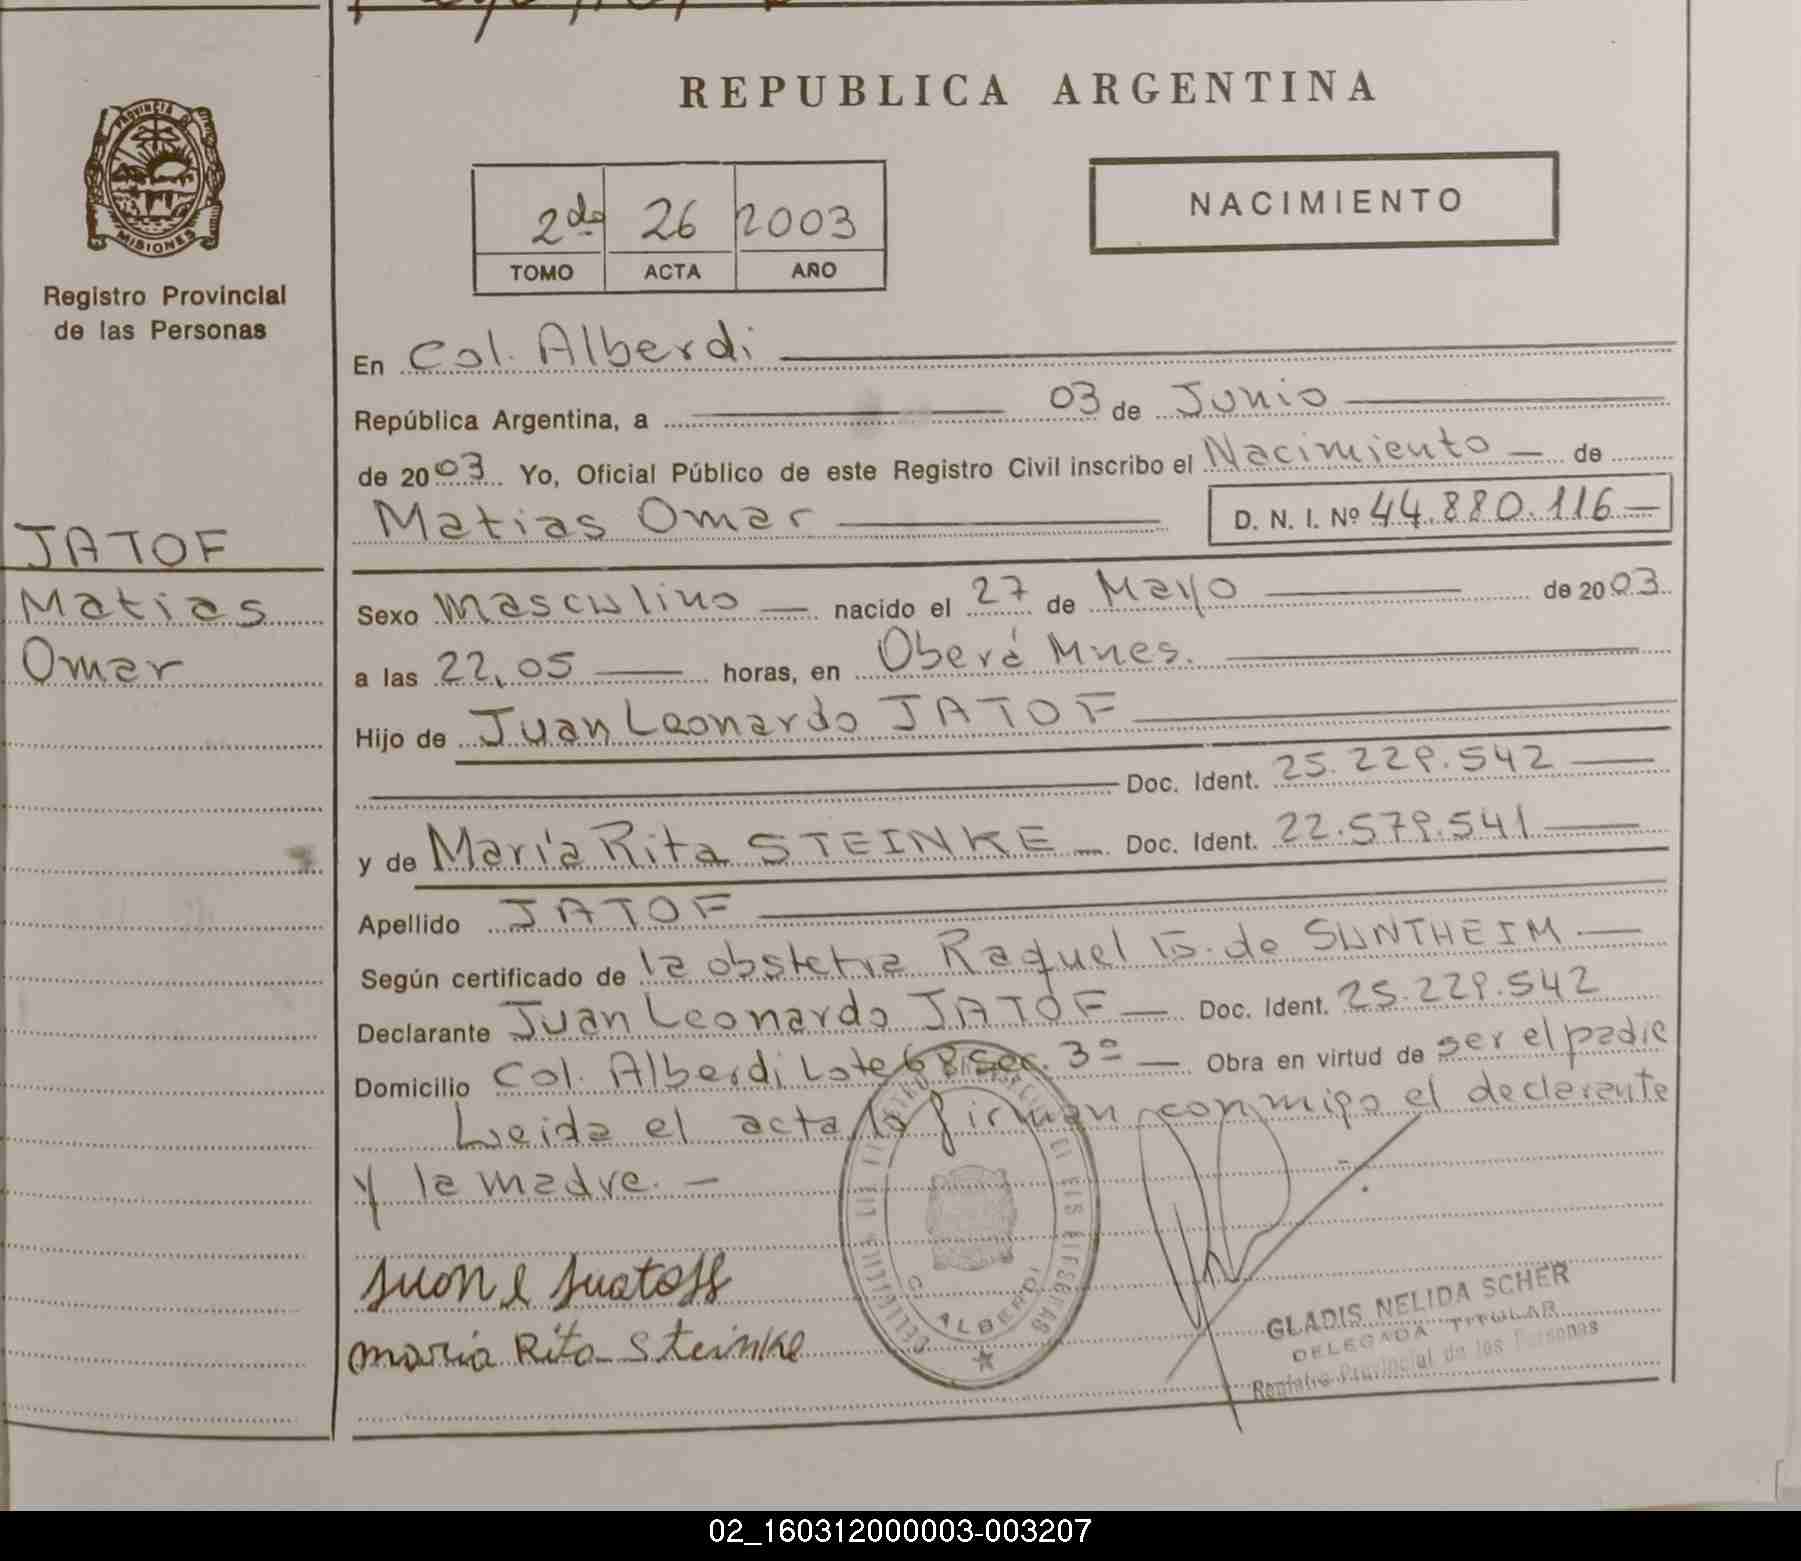 REPUBLICA ARGENTINA
PROVINCIA DE
MISIONES
Registro Provincial
de las Personas
2do 26 2003
TOMO ACTA AÑO
NACIMIENTO
En Col. Alberdi
República Argentina, a 03 de Junio
de 2003 Yo, Oficial Público de este Registro Civil inscribo el Nacimiento de
Matias Omar D. N. I. Nº 44.880.116
JATOF
Matias
Omar
Sexo Masculino nacido el 27 de Mayo de 2003
a las 22,05 horas, en Oberá Mnes.
Hijo de Juan Leonardo JATOF
Doc. Ident. 25.229.542
y de María Rita STEINKE Doc. Ident. 22.579.541
Apellido JATOF
Según certificado de la obstetra Raquel de SUNTHEIM
Declarante Juan Leonardo JATOF Doc. Ident. 25.229.542
Domicilio Col. Alberdi Lote 68 sec. 3º Obra en virtud de ser el padre
Leida el acta la firman conmigo el declarante
y la madre.
C. ALBERDI
maria Rita Steinke
GLADIS NELIDA SCHER
DELEGADA TITULAR
Registro Provincial de las Personas
02_160312000003-003207